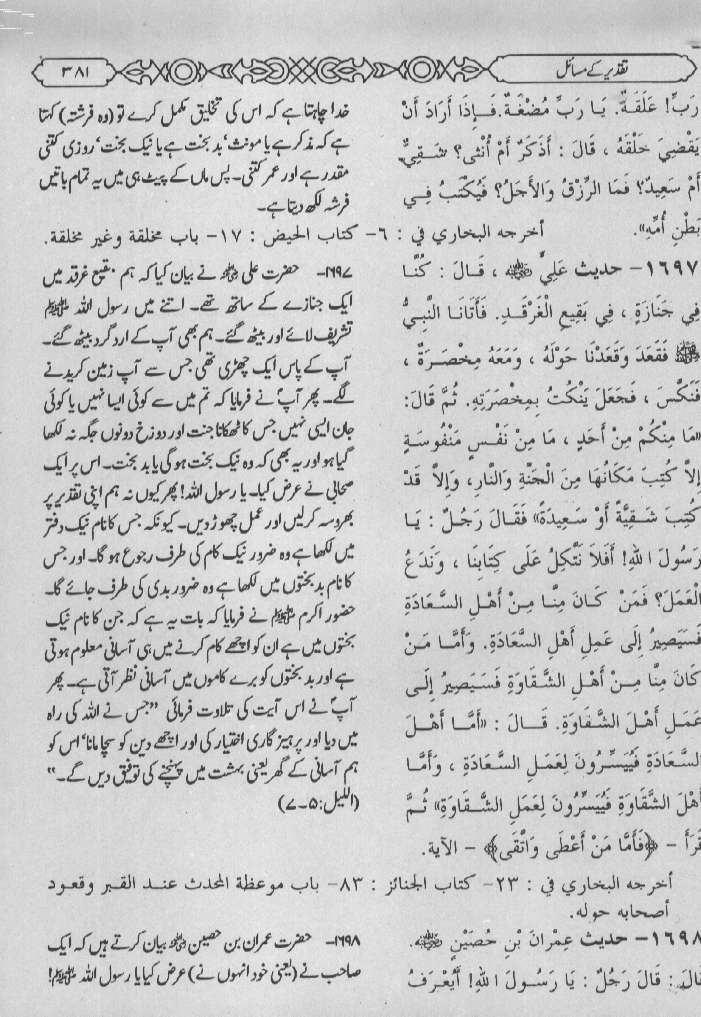 تقدیر کے مسائل
۳۸۱
رَبِّ! عَلَقَةٌ. يَا رَبِّ مُضْغَةٌ. فَإِذَا أَرَادَ أَنْ
يَقْضِيَ خَلْقَهُ ، قَالَ : أَذَكَرٌ أَمْ أُنْثَى؟ شَقِيٌّ
أَمْ سَعِيدٌ؟ فَمَا الرِّزْقُ وَالأَجَلُ؟ فَيُكْتَبُ فِي
بَطْنِ أُمِّهِ».
خدا چاہتا ہے کہ اس کی تخلیق مکمل کرے تو (وہ فرشتہ) کہتا
ہے کہ مذکر ہے یا مونث‘ بد بخت ہے یا نیک بخت‘ روزی کتنی
مقدر ہے اور عمر کتنی۔ پس ماں کے پیٹ ہی میں یہ تمام باتیں
فرشتہ لکھ دیتا ہے۔
أخرجه البخاري في : ٦- كتاب الحيض : ١٧- باب مخلقة وغير مخلقة.
١٦٩٧- حديث عَلِيٍّ ﷺ ، قَالَ : كُنَّا
فِي جَنَازَةٍ ، فِي بَقِيعِ الْغَرْقَدِ. فَأَتَانَا النَّبِيُّ
ﷺ فَقَعَدَ وَقَعَدْنَا حَوْلَهُ ، وَمَعَهُ مِخْصَرَةٌ ،
فَنَكَّسَ ، فَجَعَلَ يَنْكُتُ بِمِخْصَرَتِهِ. ثُمَّ قَالَ:
«مَا مِنْكُمْ مِنْ أَحَدٍ ، مَا مِنْ نَفْسٍ مَنْفُوسَةٍ
إِلاَّ كُتِبَ مَكَانُهَا مِنَ الْجَنَّةِ وَالنَّارِ، وَإِلاَّ قَدْ
كُتِبَ شَقِيَّةً أَوْ سَعِيدَةً» فَقَالَ رَجُلٌ : يَا
رَسُولَ اللهِ! أَفَلاَ نَتَّكِلُ عَلَى كِتَابِنَا ، وَنَدَعُ
الْعَمَلَ؟ فَمَنْ كَانَ مِنَّا مِنْ أَهْلِ السَّعَادَةِ
فَسَيَصِيرُ إِلَى عَمَلِ أَهْلِ السَّعَادَةِ. وَأَمَّا مَنْ
كَانَ مِنَّا مِنْ أَهْلِ الشَّقَاوَةِ فَسَيَصِيرُ إِلَى
عَمَلِ أَهْلِ الشَّقَاوَةِ. قَالَ : «أَمَّا أَهْلُ
السَّعَادَةِ فَيُيَسَّرُونَ لِعَمَلِ السَّعَادَةِ ، وَأَمَّا
أَهْلُ الشَّقَاوَةِ فَيُيَسَّرُونَ لِعَمَلِ الشَّقَاوَةِ» ثُمَّ
قَرَأَ - ﴿فَأَمَّا مَنْ أَعْطَى وَاتَّقَى﴾ - الآية.
۱۶۹۷۔ حضرت علی نے بیان کیا کہ ہم بقیع غرقد میں
ایک جنازے کے ساتھ تھے۔ اتنے میں رسول اللہ ﷺ
تشریف لائے اور بیٹھ گئے۔ ہم بھی آپ کے ارد گرد بیٹھ گئے۔
آپ کے پاس ایک چھڑی تھی جس سے آپ زمین کریدنے
لگے۔ پھر آپؐ نے فرمایا کہ تم میں سے کوئی ایسا نہیں یا کوئی
جان ایسی نہیں جس کا ٹھکانا جنت اور دوزخ دونوں جگہ نہ لکھا
گیا ہو اور یہ بھی کہ وہ نیک بخت ہوگی یا بد بخت۔ اس پر ایک
صحابی نے عرض کیا۔ یا رسول اللہ! پھر کیوں نہ ہم اپنی تقدیر پر
بھروسہ کرلیں اور عمل چھوڑ دیں۔ کیونکہ جس کا نام نیک دفتر
میں لکھا ہے وہ ضرور نیک کام کی طرف رجوع ہو گا۔ اور جس
کا نام بد بختوں میں لکھا ہے وہ ضرور بدی کی طرف جائے گا۔
حضور اکرم ﷺ نے فرمایا کہ بات یہ ہے کہ جن کا نام نیک
بختوں میں ہے ان کو اچھے کام کرنے میں ہی آسانی معلوم ہوتی
ہے اور بد بختوں کو برے کاموں میں آسانی نظر آتی ہے۔ پھر
آپؐ نے اس آیت کی تلاوت فرمائی ”جس نے اللہ کی راہ
میں دیا اور پرہیز گاری اختیار کی اور اچھے دین کو سچا مانا‘ اس کو
ہم آسانی کے گھر یعنی بہشت میں پہنچنے کی توفیق دیں گے۔“
(اللیل: ۵۔۷)
أخرجه البخاري في : ٢٣- كتاب الجنائز : ٨٣- باب موعظة المحدث عند القبر وقعود
أصحابه حوله.
١٦٩٨- حديث عِمْرَانَ بْنِ حُصَيْنٍ .
قَالَ : قَالَ رَجُلٌ : يَا رَسُولَ اللهِ! أَيُعْرَفُ
۱۶۹۸۔ حضرت عمران بن حصین بیان کرتے ہیں کہ ایک
صاحب نے (یعنی خود انہوں نے) عرض کیا یا رسول اللہ ﷺ!